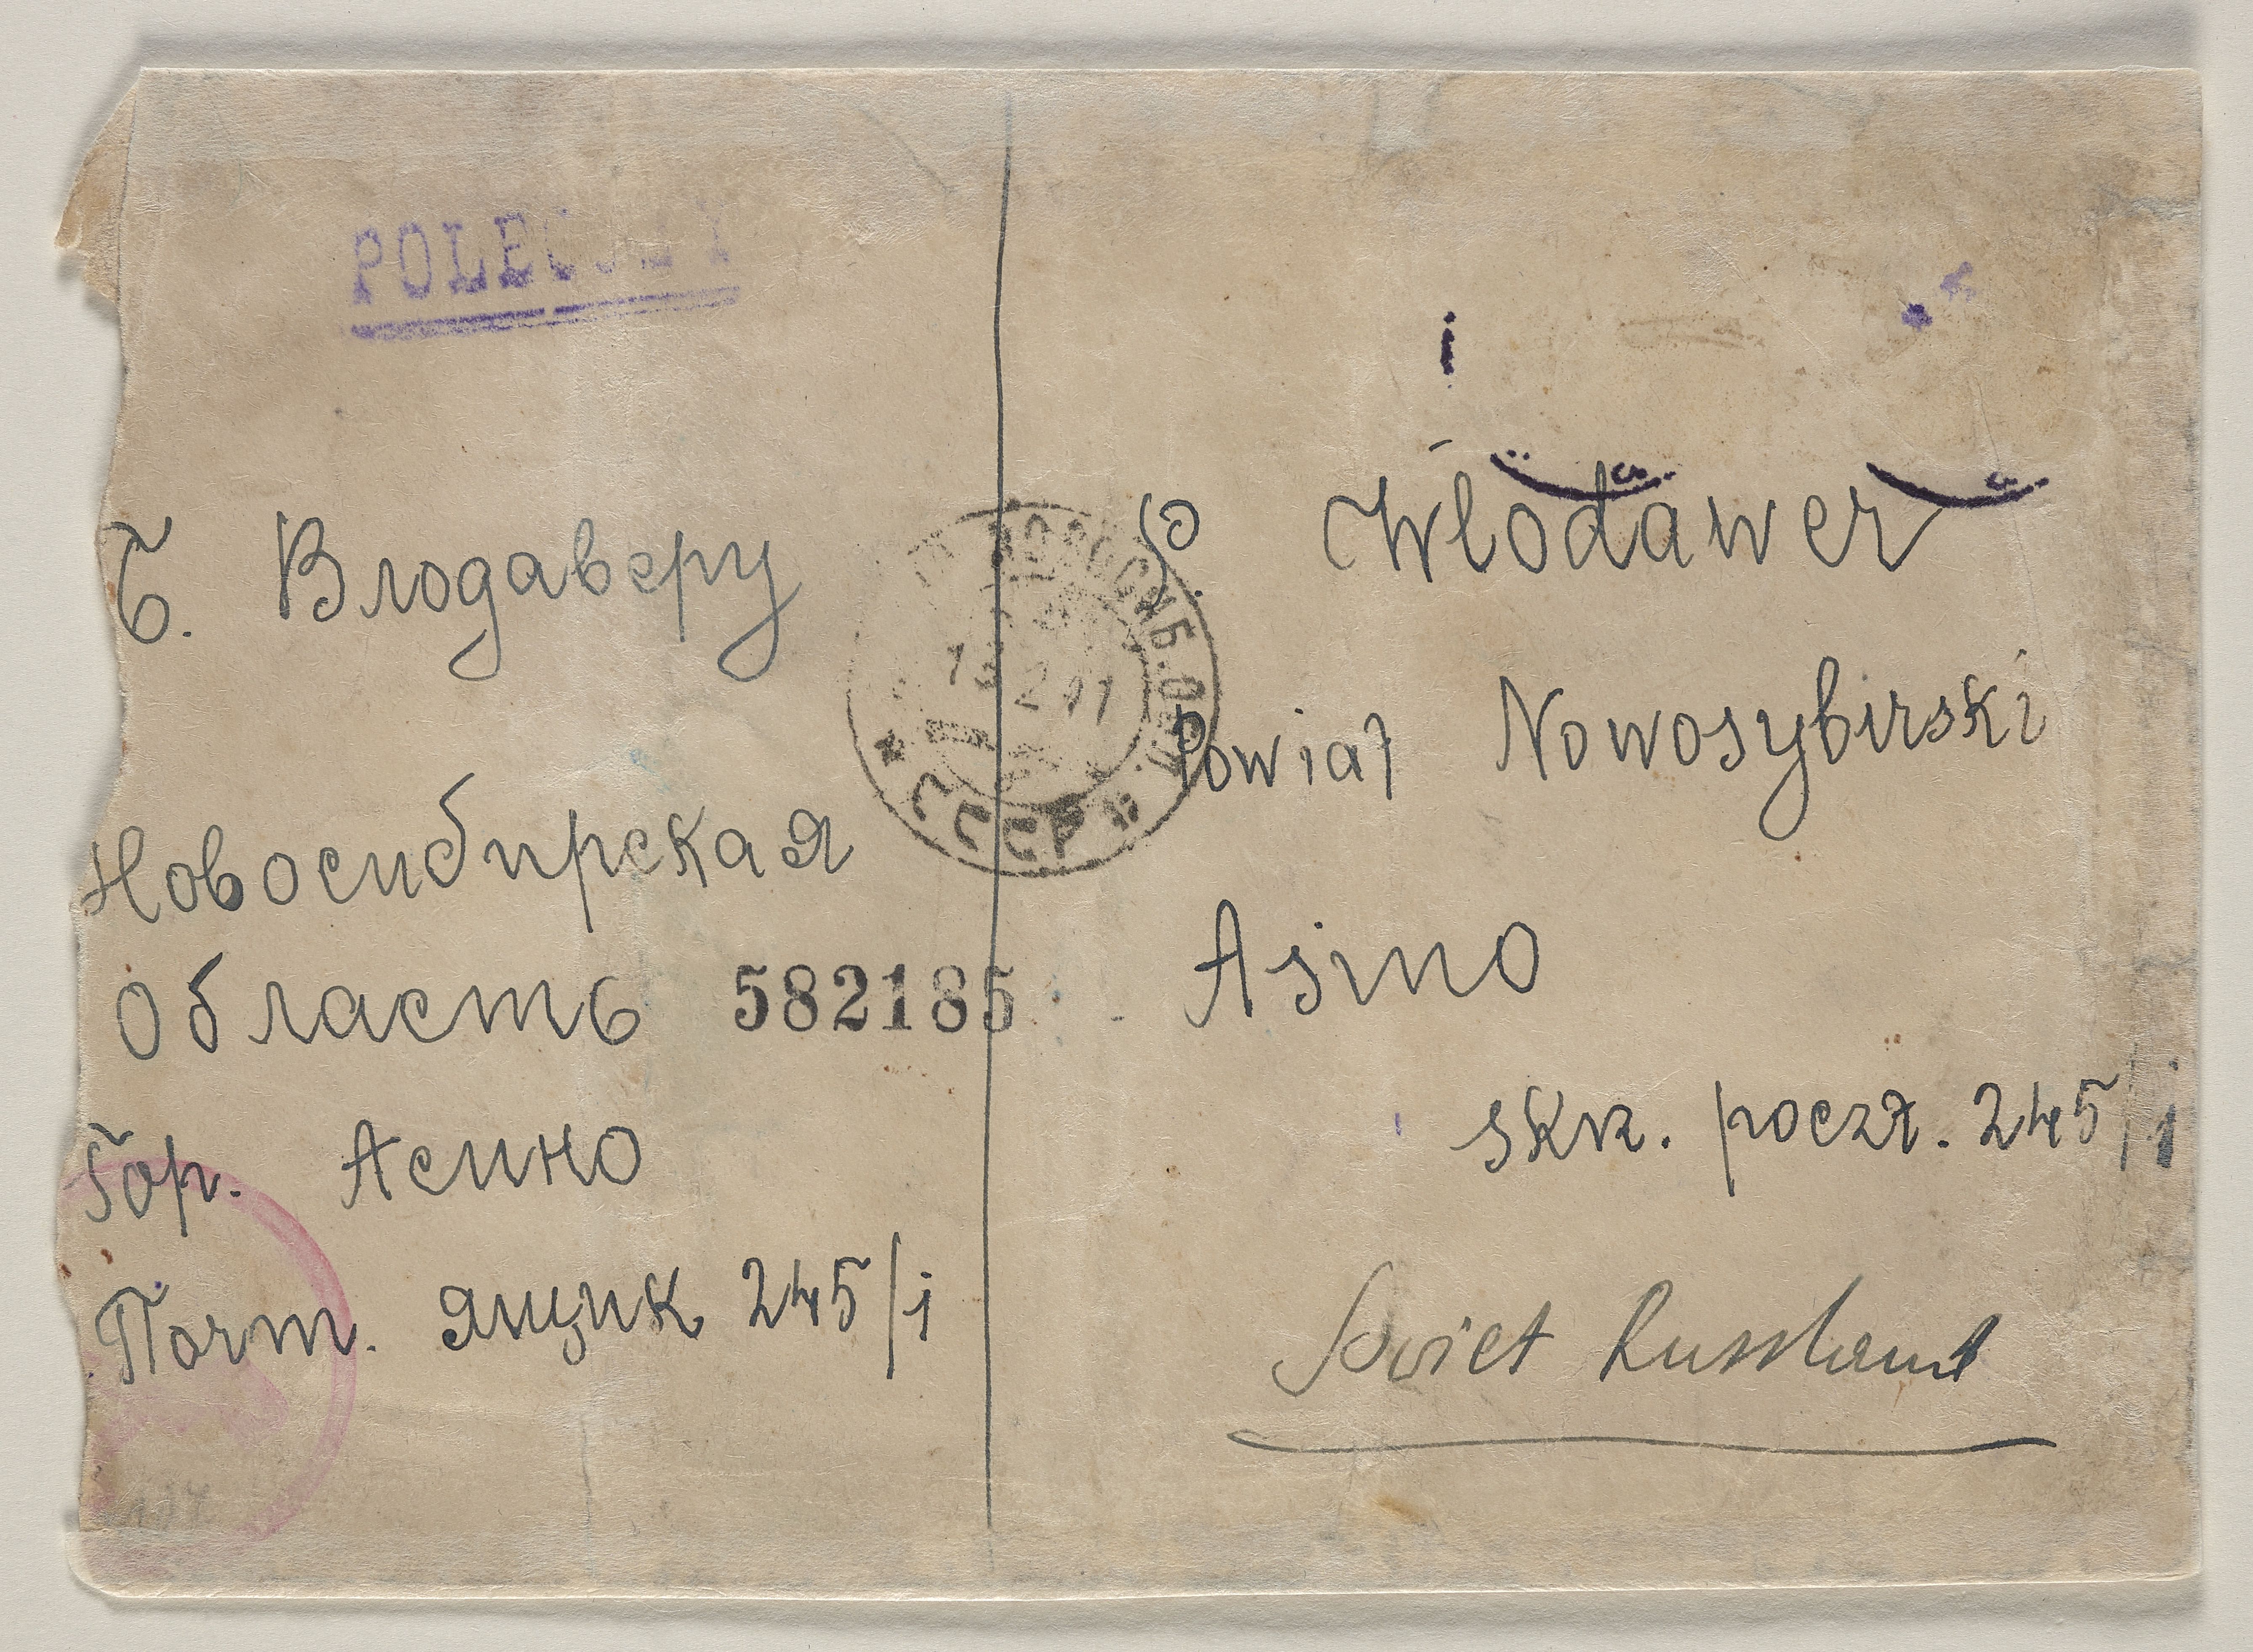 Б. Влодаверу
Новосибирская
Область
Гор. Асино
Почт. ящик 245/i
582185
НОВОСИБ. ОБЛ.
13 2 41
СССР
B. Włodawer
Powiat Nowosybirski
Asino
skr. poczt. 245/i
Soviet Russland